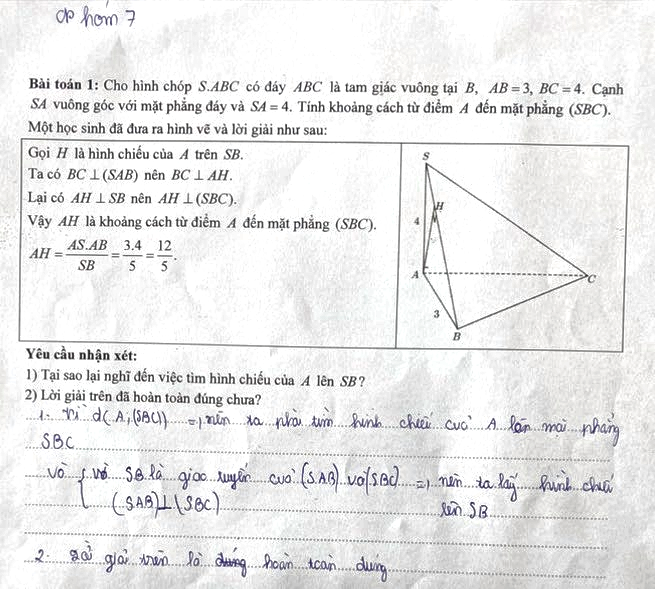 hóm 7
Bài toán 1: Cho hình chóp S.ABC có đáy ABC là tam giác vuông tại B, AB = 3, BC = 4. Cạnh
SA vuông góc với mặt phẳng đáy và SA = 4. Tính khoảng cách từ điểm A đến mặt phẳng (SBC).
Một học sinh đã đưa ra hình vẽ và lời giải như sau:
Gọi H là hình chiếu của A trên SB.
Ta có BC ⊥ (SAB) nên BC ⊥ AH.
Lại có AH ⊥ SB nên AH ⊥ (SBC).
Vậy AH là khoảng cách từ điểm A đến mặt phẳng (SBC).
AH = AS.AB/SB = 3.4/5 = 12/5.
S
H
4
A
C
3
B
Yêu cầu nhận xét:
1) Tại sao lại nghĩ đến việc tìm hình chiếu của A lên SB?
2) Lời giải trên đã hoàn toàn đúng chưa?
1. Vì d(A;(SBC)) => nên ta phải tìm hình chiếu của A lên mặt phẳng
SBC
và { SB là giao tuyến của (SAB) và (SBC) => nên ta lấy hình chiếu
(SAB) ⊥ (SBC) lên SB
2. giải trên là hoàn toàn đúng